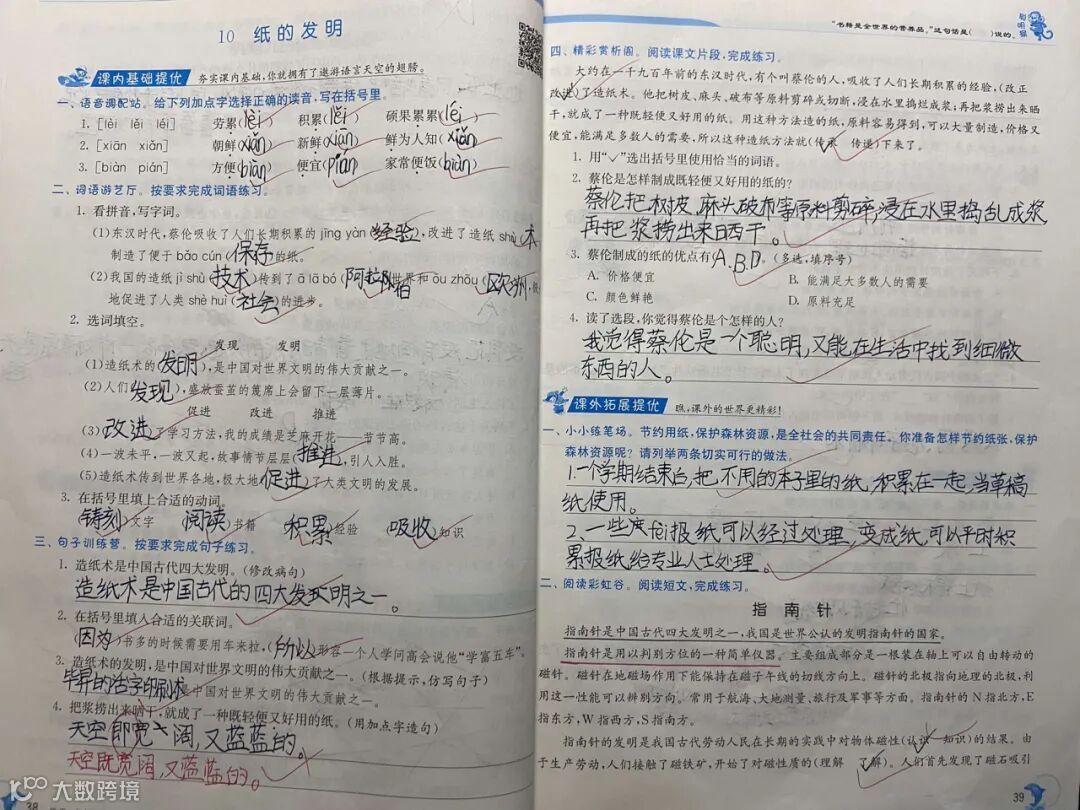 10 纸的发明
课内基础提优 夯实课内基础,你就拥有了遨游语言天空的翅膀。
一、语音调配站。给下列加点字选择正确的读音,写在括号里。
1. [lèi lěi léi] 劳累(lèi) 积累(lěi) 硕果累累(léi)
2. [xiān xiǎn] 朝鲜(xiǎn) 新鲜(xiān) 鲜为人知(xiǎn)
3. [biàn pián] 方便(biàn) 便宜(pián) 家常便饭(biàn)
二、词语游艺厅。按要求完成词语练习。
1. 看拼音,写字词。
(1)东汉时代,蔡伦吸收了人们长期积累的 jīng yàn(经验),改进了造纸 shù(术
制造了便于 bǎo cún(保存)的纸。
(2)我国的造纸 jì shù(技术)传到了 ā lā bó(阿拉伯)世界和 ōu zhōu(欧洲,
地促进了人类 shè huì(社会)的进步。
2. 选词填空。
发现 发明
(1)造纸术的(发明),是中国对世界文明的伟大贡献之一。
(2)人们(发现),盛放蚕茧的篾席上会留下一层薄片。
促进 改进 推进
(3)(改进)了学习方法,我的成绩是芝麻开花——节节高。
(4)一波未平,一波又起,故事情节层层(推进),引人入胜。
(5)造纸术传到世界各地,极大地(促进)了人类文明的发展。
3. 在括号里填上合适的动词。
(铸刻)文字 (阅读)书籍 (积累)经验 (吸收)知识
三、句子训练营。按要求完成句子练习。
1. 造纸术是中国古代四大发明。(修改病句)
造纸术是中国古代的四大发明之一。
2. 在括号里填入合适的关联词。
(因为)书多的时候需要用车来拉,(所以)形容一个人学问高会说他“学富五车”。
3. 造纸术的发明,是中国对世界文明的伟大贡献之一。(根据提示,仿写句子)
毕昇的活字印刷术,中国对世界文明的伟大贡献之一。
4. 把浆捞出来晒干,就成了一种既轻便又好用的纸。(用加点字造句)
天空即宽阔,又蓝蓝的。
天空既宽阔,又蓝蓝的。
38
“书籍是全世界的营养品。”这句话是( )说的。
四、精彩赏析阁。阅读课文片段,完成练习。
大约在一千九百年前的东汉时代,有个叫蔡伦的人,吸收了人们长期积累的经验,(改正
改进)了造纸术。他把树皮、麻头、破布等原料剪碎或切断,浸在水里捣烂成浆;再把浆捞出来晒
干,就成了一种既轻便又好用的纸。用这种方法造的纸,原料容易得到,可以大量制造,价格又
便宜,能满足多数人的需要,所以这种造纸方法就(传承 传递)下来了。
1. 用“✓”选出括号里使用恰当的词语。
2. 蔡伦是怎样制成既轻便又好用的纸的?
蔡伦把树皮,麻头破布等原料剪碎,浸在水里捣乱成浆
再把浆捞出来晒干。
3. 蔡伦制成的纸的优点有(A.B.D)。(多选,填序号)
A. 价格便宜 B. 能满足大多数人的需要
C. 颜色鲜艳 D. 原料充足
4. 读了选段,你觉得蔡伦是个怎样的人?
我觉得蔡伦是一个聪明,又能在生活中找到细微
东西的人。
课外拓展提优 瞧,课外的世界更精彩!
一、小小练笔场。节约用纸,保护森林资源,是全社会的共同责任。你准备怎样节约纸张,保护
森林资源呢?请列举两条切实可行的做法。
1.一个学期结束后,把不用的本子里的纸,积累在一起,当草稿
纸使用。
2、一些废fèi报纸可以经过处理,变成纸,可以平时积
累报纸给专业人士处理。
二、阅读彩虹谷。阅读短文,完成练习。
指南针
指南针是中国古代四大发明之一,我国是世界公认的发明指南针的国家。
指南针是用以判别方位的一种简单仪器。主要组成部分是一根装在轴上可以自由转动的
磁针。磁针在地磁场作用下能保持在磁子午线的切线方向上。磁针的北极指向地理的北极,利
用这一性能可以辨别方向。常用于航海、大地测量、旅行及军事等方面。指南针的N指北方,E
指东方,W指西方,S指南方。
指南针的发明是我国古代劳动人民在长期的实践中对物体磁性(认识 知识)的结果。由
于生产劳动,人们接触了磁铁矿,开始了对磁性质的(理解 了解)。人们首先发现了磁石吸引
39
大数跨境